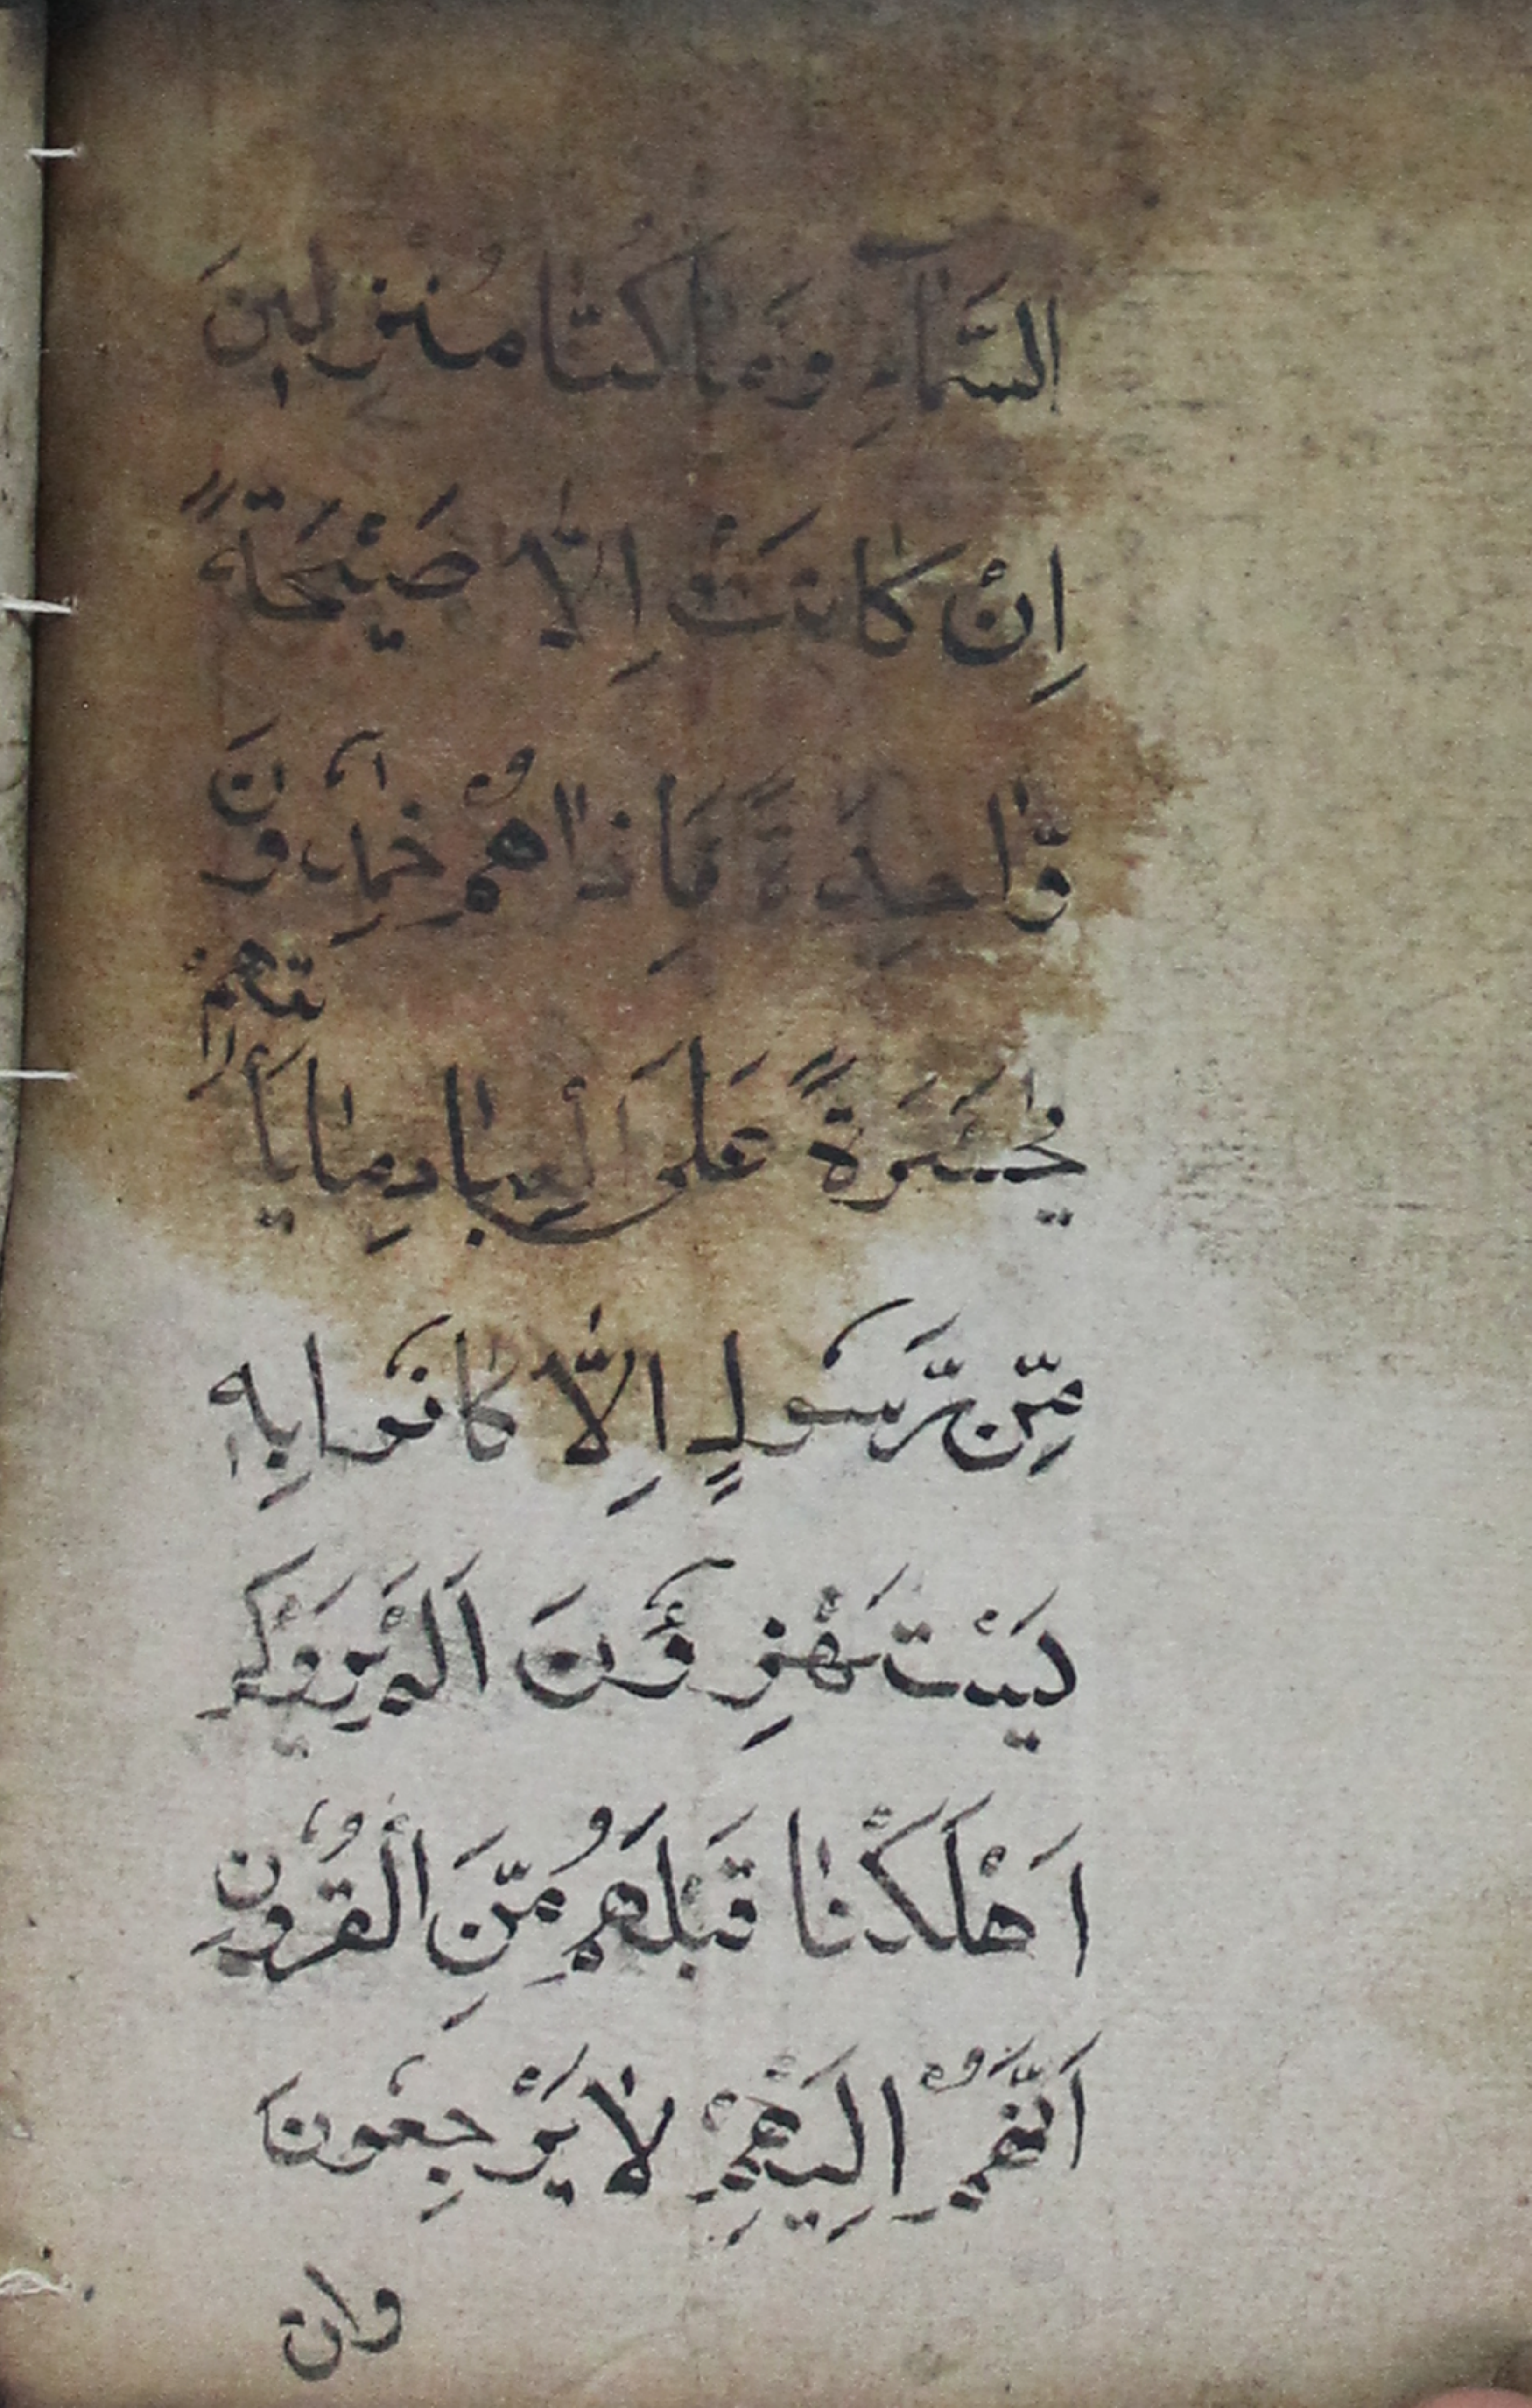 السَّمَآءِ وَمَا كُنَّا مُنْزِلِينَ
اِنْ كَانَتْ اِلَّا صَيْحَةً
وَّاحِدَةً فَاِذَا هُمْ خٰمِدُونَ
يٰحَسْرَةً عَلَى الْعِبَادِ مَا يَأْتِيهِمْ
مِّنْ رَّسُولٍ اِلَّا كَانُوا بِهٖ
يَسْتَهْزِؤُنَ اَلَمْ يَرَوْا كَمْ
اَهْلَكْنَا قَبْلَهُمْ مِّنَ الْقُرُونِ
اَنَّهُمْ اِلَيْهِمْ لَا يَرْجِعُونَ
وان